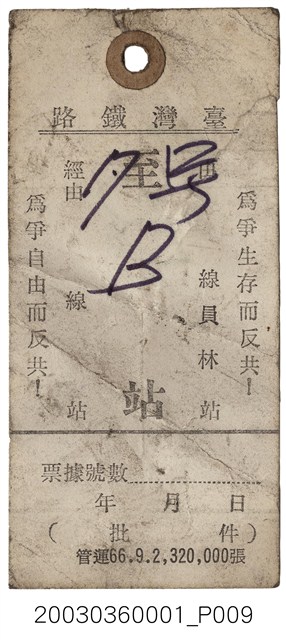 臺灣鐵路
爲爭生存而反共！
由 線員林站
至 站
經由 線 站
爲爭自由而反共！
号
B
票據號數
年 月 日
（ 批 件）
管運66.9.2,320,000張
20030360001_P009